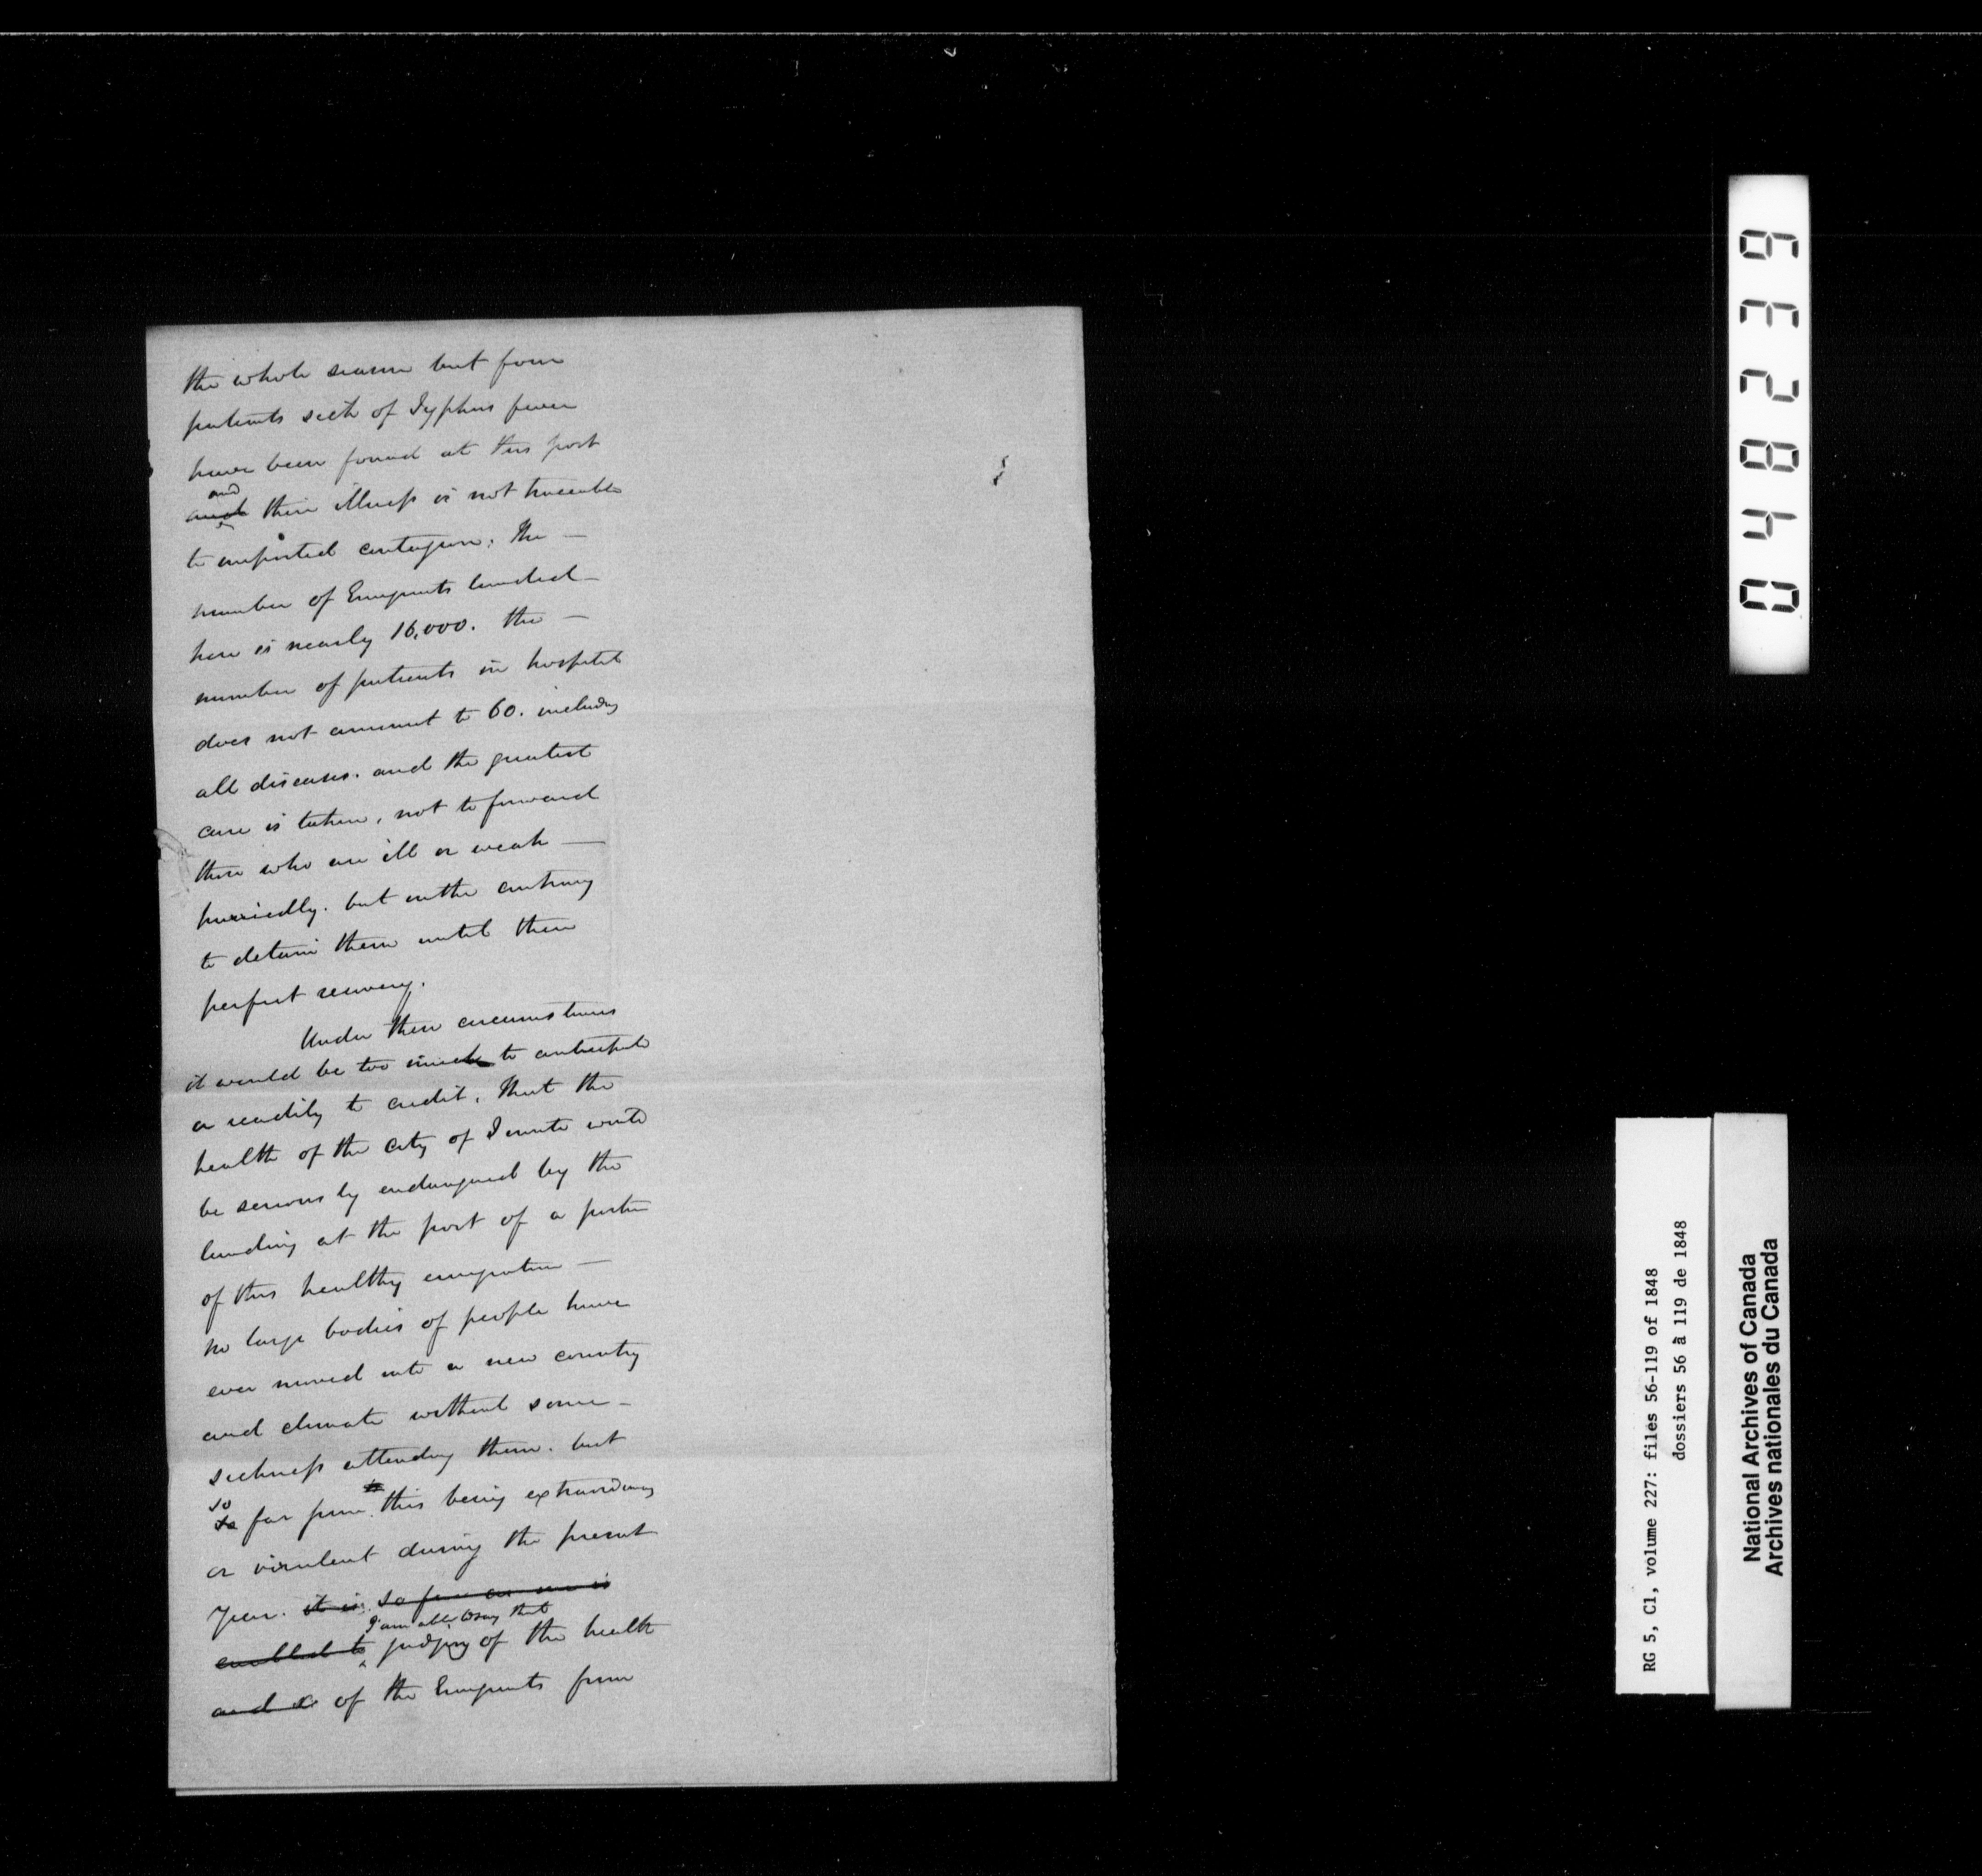 the whole season but four
patients sick of Typhus fever
have been found at this port
and
and their illness is not traceable
to imported contagion. The —
number of Emigrants landed —
here is nearly 16,000. the —
number of patients in hospital
does not amount to 60. including
all diseases. and the greatest
care is taken, not to forward
those who are ill or weak —
hurriedly. but on the contrary
to detain them until their
perfect recovery.
Under these circumstances
it would be too much to anticipate
a readily to credit, that the
health of the city of Toronto would
be seriously endangered by the
landing at the port of a portion
of this healthy emigration —
no large bodies of people have
ever moved into a new country
and climate without some —
sickness attending them. but
so
so far from this being extraordinary
or virulent during the present
year. it is so far as one is
I am able to say that
enabled to judging of the health
and of the Emigrants from
048239
RG 5, C1, volume 227: files 56-119 of 1848
dossiers 56 à 119 de 1848
National Archives of Canada
Archives nationales du Canada